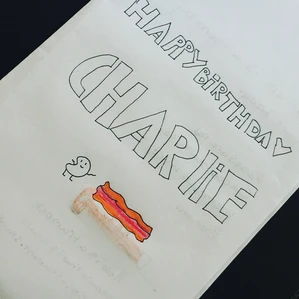 HAPPY BiRTHDAY
CHARlIE